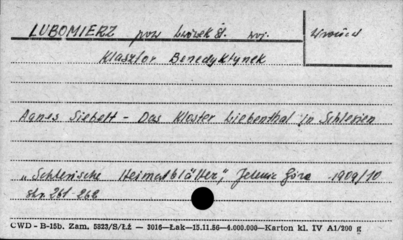 LUBOMIERZ pow Lwówek Śl. woj.
Klasztor Benedyktynek
Agnes Siebelt - Das Kloster Liebenthal in Schlesien
„Schlesische Heimatblätter", Jelenia Góra 1909/10
str. 261-266
CWD - B-15b. Zam. 5823/S/Łż — 2016—Łak—15.11.56—4.000.000—Karton kl. IV A1/200 g